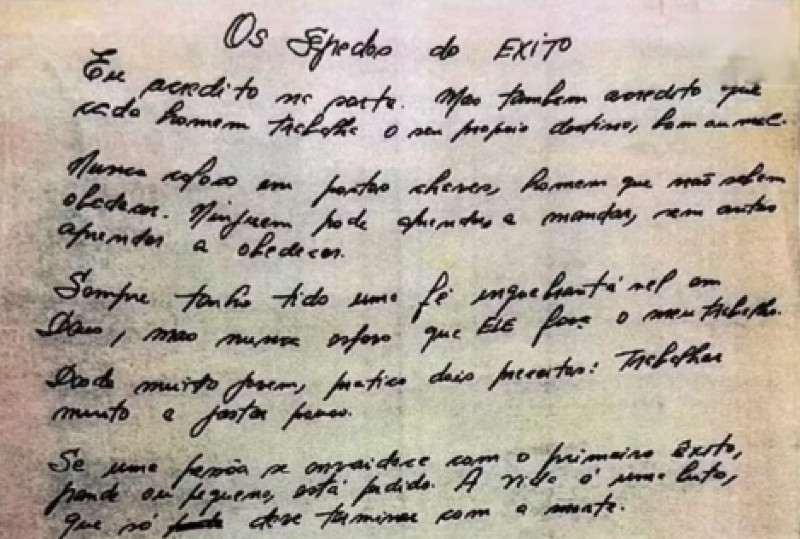 Os Segredos do EXITO
Eu acredito na sorte. Mas tambem acredito que
cada homem trabalha o seu proprio destino, bom ou mal.
Nunca coloco em postos chaves, homem que não sabem
obedecer. Ninguem pode aprender a mandar, sem antes
aprender a obedecer.
Sempre tenho tido uma fé inquebrantável em
Deus, mas nunca espero que ELE faça o meu trabalho.
Desde muito jovem, pratico dois preceitos: Trabalhar
muito e gastar pouco.
Se uma pessôa se envaidece com o primeiro êxito,
grande ou pequeno, está perdido. A vida é uma luta,
que só deve terminar com a morte.